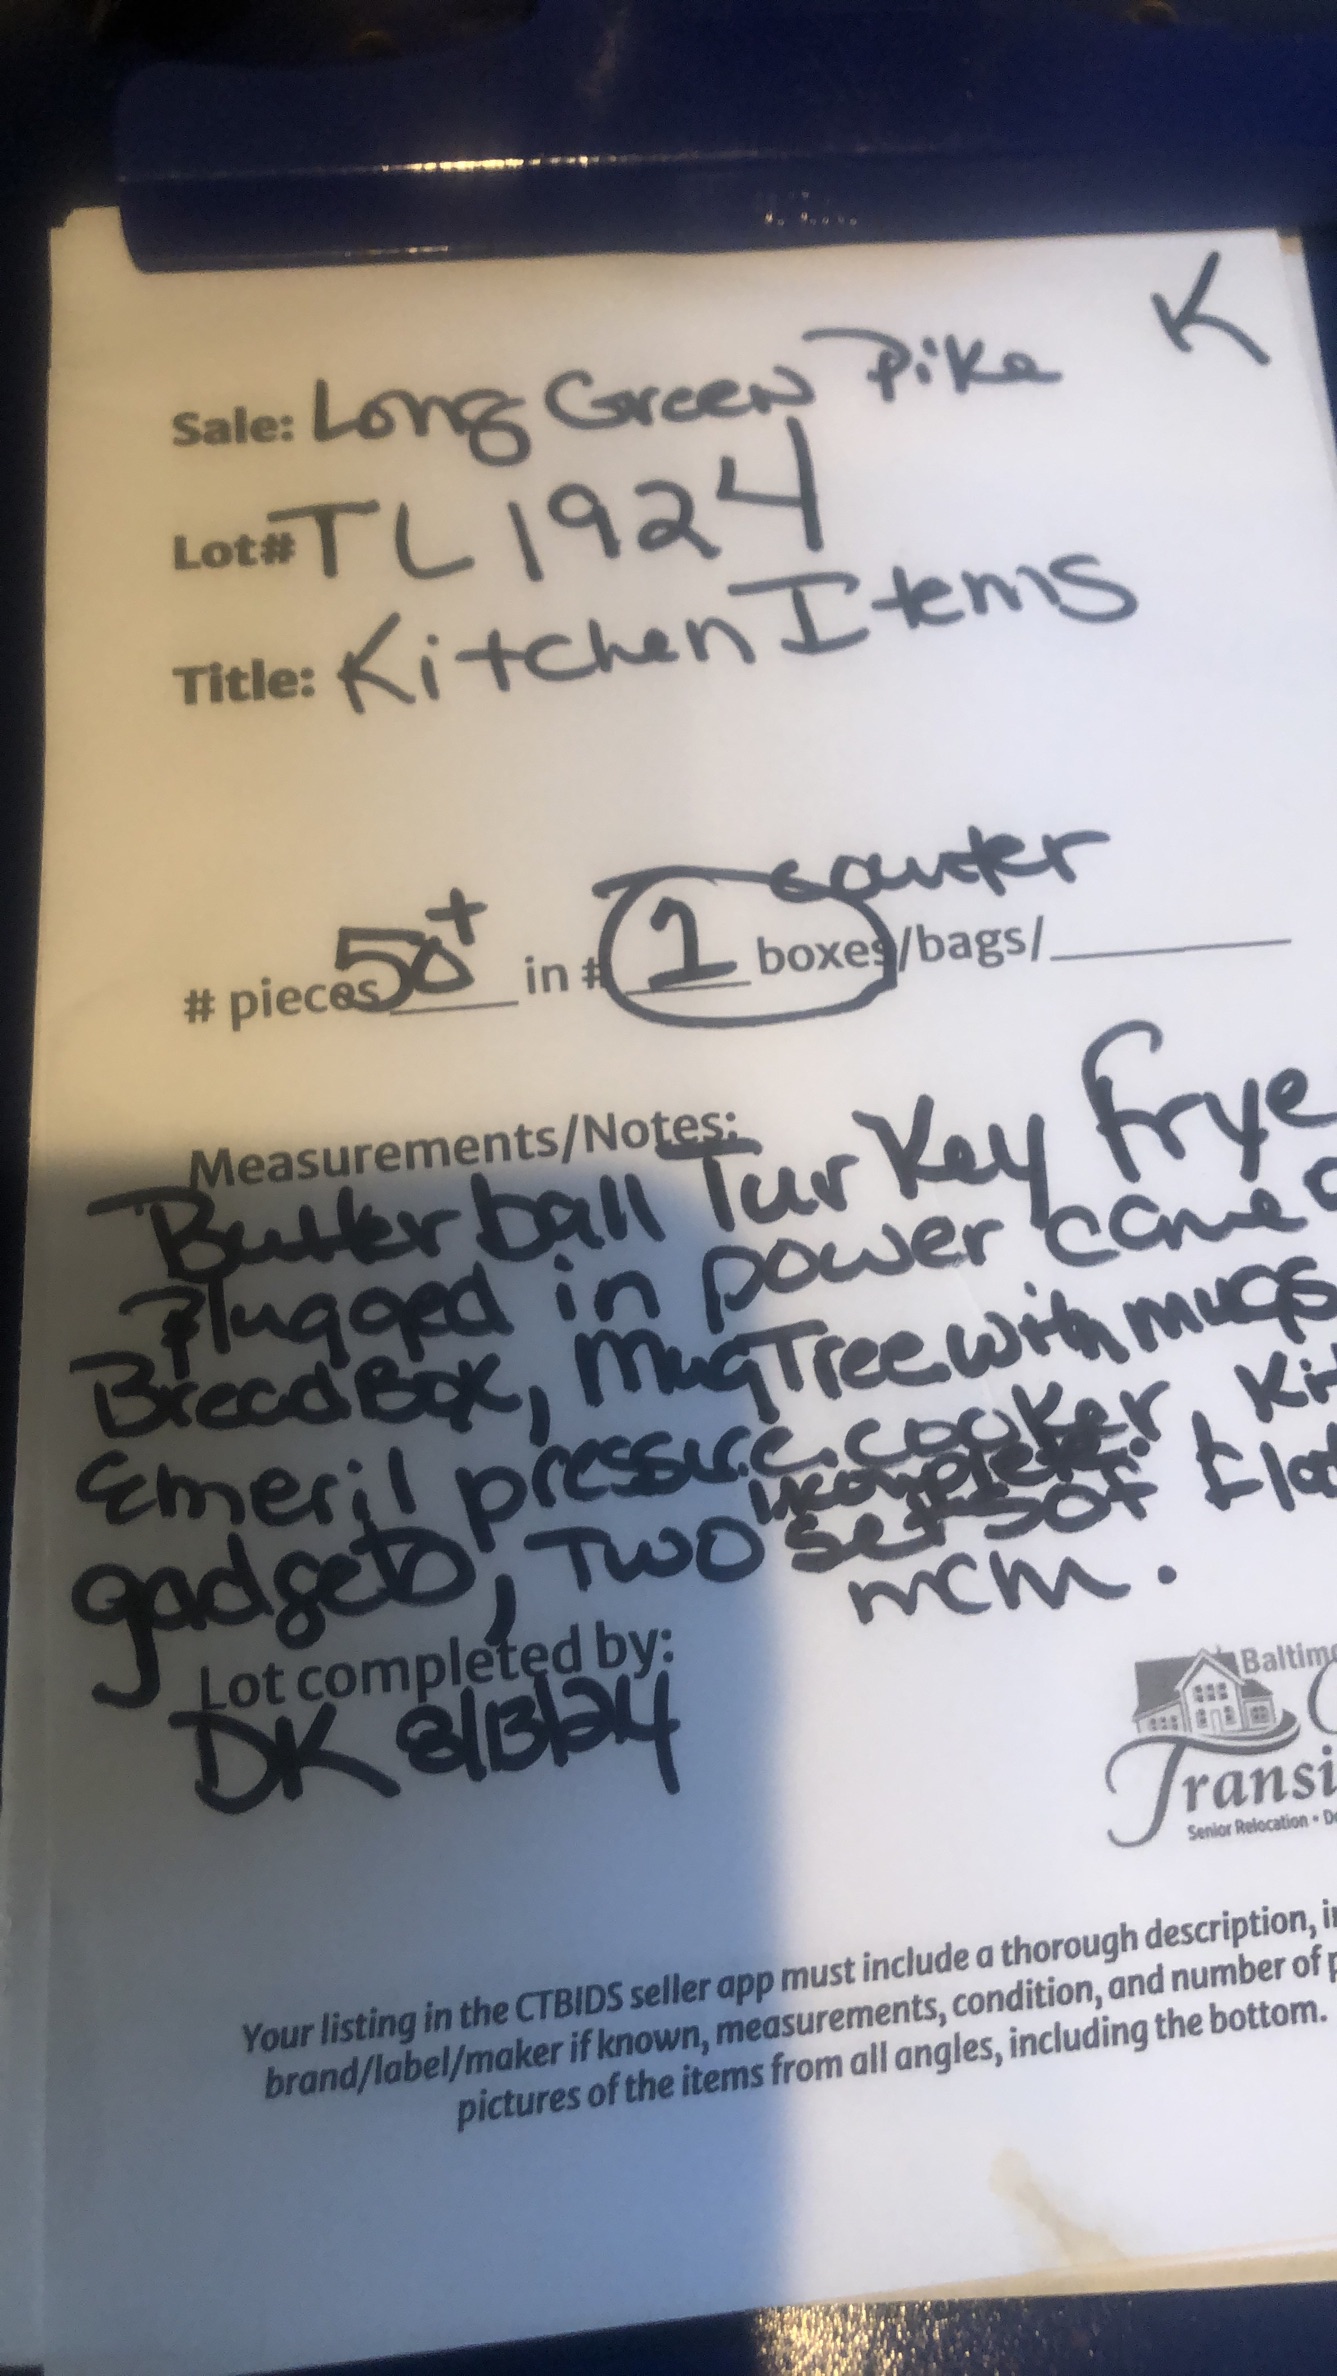 K
Sale: Long Green Pike
Lot# TL1924
Title: Kitchen Items
counter
# pieces 50+ in # 1 boxes/bags/
Measurements/Notes:
Butterball Turkey Frye
Plugged in power came
Bread Box, Mug Tree with mugs
Emeril pressure cooker, Kit
incomplete
gadgets, Two sets of flat
mcm.
Lot completed by:
DK 8/13/24
Baltimo
Transi
Senior Relocation •
Your listing in the CTBIDS seller app must include a thorough description, i
brand/label/maker if known, measurements, condition, and number of p
pictures of the items from all angles, including the bottom.